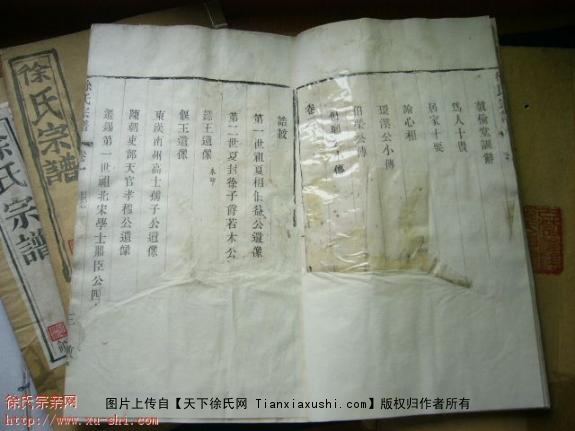 敦倫堂訓辭
為人十畏
居家十要
諭心相
環溪公小傳
公傳
卷
誥敕
第一世祖夏相伯益公遺像
第二世夏封徐子爵若木公
王遺像
偃王遺像
東漢南州高士孺子公遺像
陳朝吏部天官孝穆公遺像
遷錫第一世祖北宋學士
徐氏宗譜
徐氏宗譜
徐氏宗譜
徐氏宗亲网
http://www.xu-shi.com
图片上传自【天下徐氏网 Tianxiaxushi.com】版权归作者所有